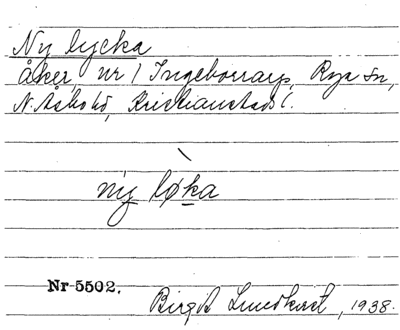 Ny lycka
åker, nr 1 Ingeborrarp, Rya sn,
N. Åsbo hd, Kristianstads l.
ny løka
Nr 5502.
Birgit Lundkvist, 1938.